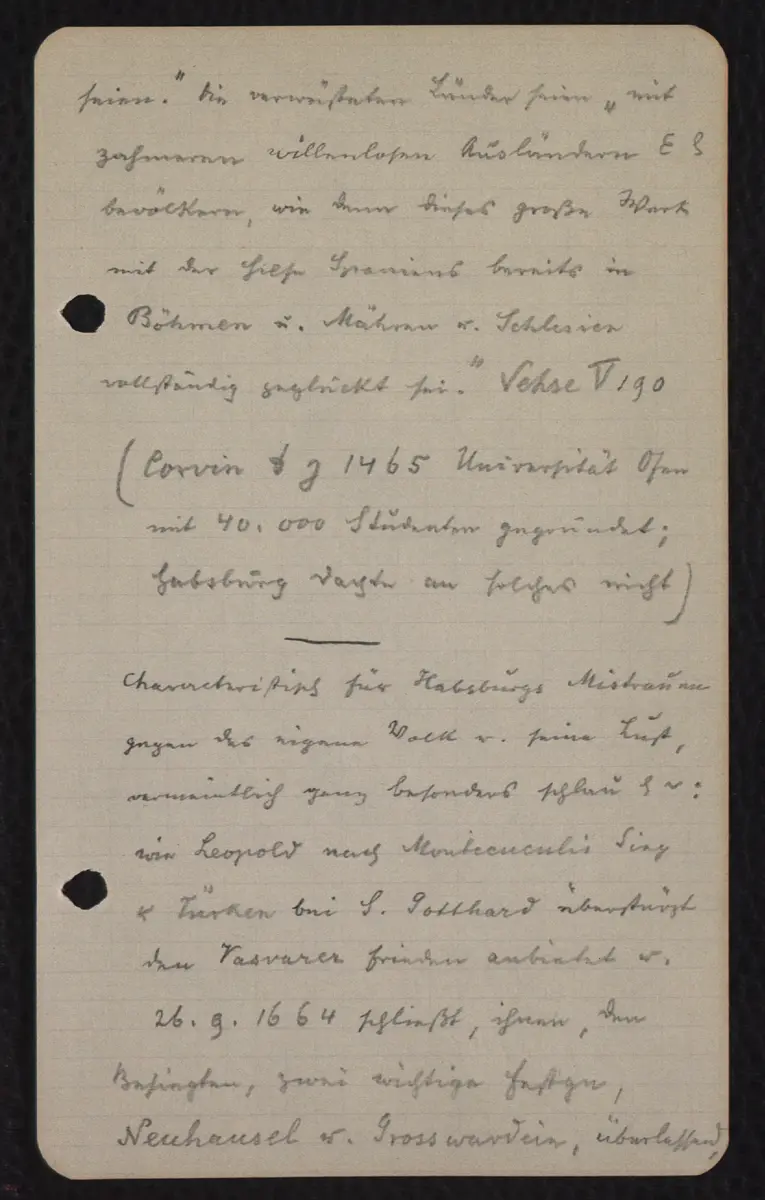 seien." die verwüsteten Länder seien „mit
zahmeren willenlosen Ausländern z 
bevölkern, wie denn dieses große Werk
mit der Hilfe Spaniens bereits in
Böhmen u. Mähren u. Schlesien
vollständig geglückt sei." Vehse V 190
(Corvin 1465 Universität Ofen
mit 40.000 Studenten gegründet;
Habsburg dachte an solches nicht)
Characteristisch für Habsburgs Mistrauen
gegen das eigene Volk u. seine Lust,
vermeintlich ganz besonders schlau z :
wie Leopold nach Montecuculis Sieg
Türken bei S. Gotthard überstürzt
den Vasvarer Frieden anbietet u.
26.9.1664 schließt, ihnen, den
Besiegten, zwei wichtige Festgn,
Neuhausel u. Grosswardein, überlassend,